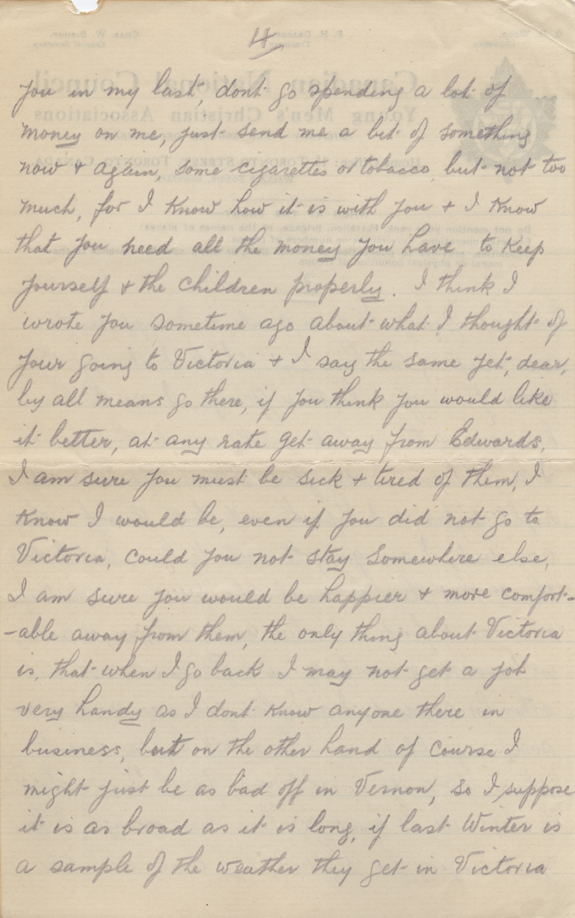 4
you in my last, dont go spending a lot of
money on me, just send me a bit of something
now & again, some cigarettes or tobacco, but not too
much, for I know how it is with you & I know
that you need all the money you have to keep
yourself & the children properly. I think I
wrote you sometime ago about what I thought of
your going to Victoria & I say the same yet, dear,
by all means go there, if you think you would like
it better, at any rate get away from Edwards,
I am sure you must be sick & tired of them, I
know I would be, even if you did not go to
Victoria, could you not stay somewhere else,
I am sure you would be happier & more comfort-
-able away from them, the only thing about Victoria
is, that when I go back I may not get a job
very handy as I dont know anyone there in
business, but on the other hand of course I
might just be as bad off in Vernon, so I suppose
it is as broad as it is long, if last Winter is
a sample of the weather they get in Victoria